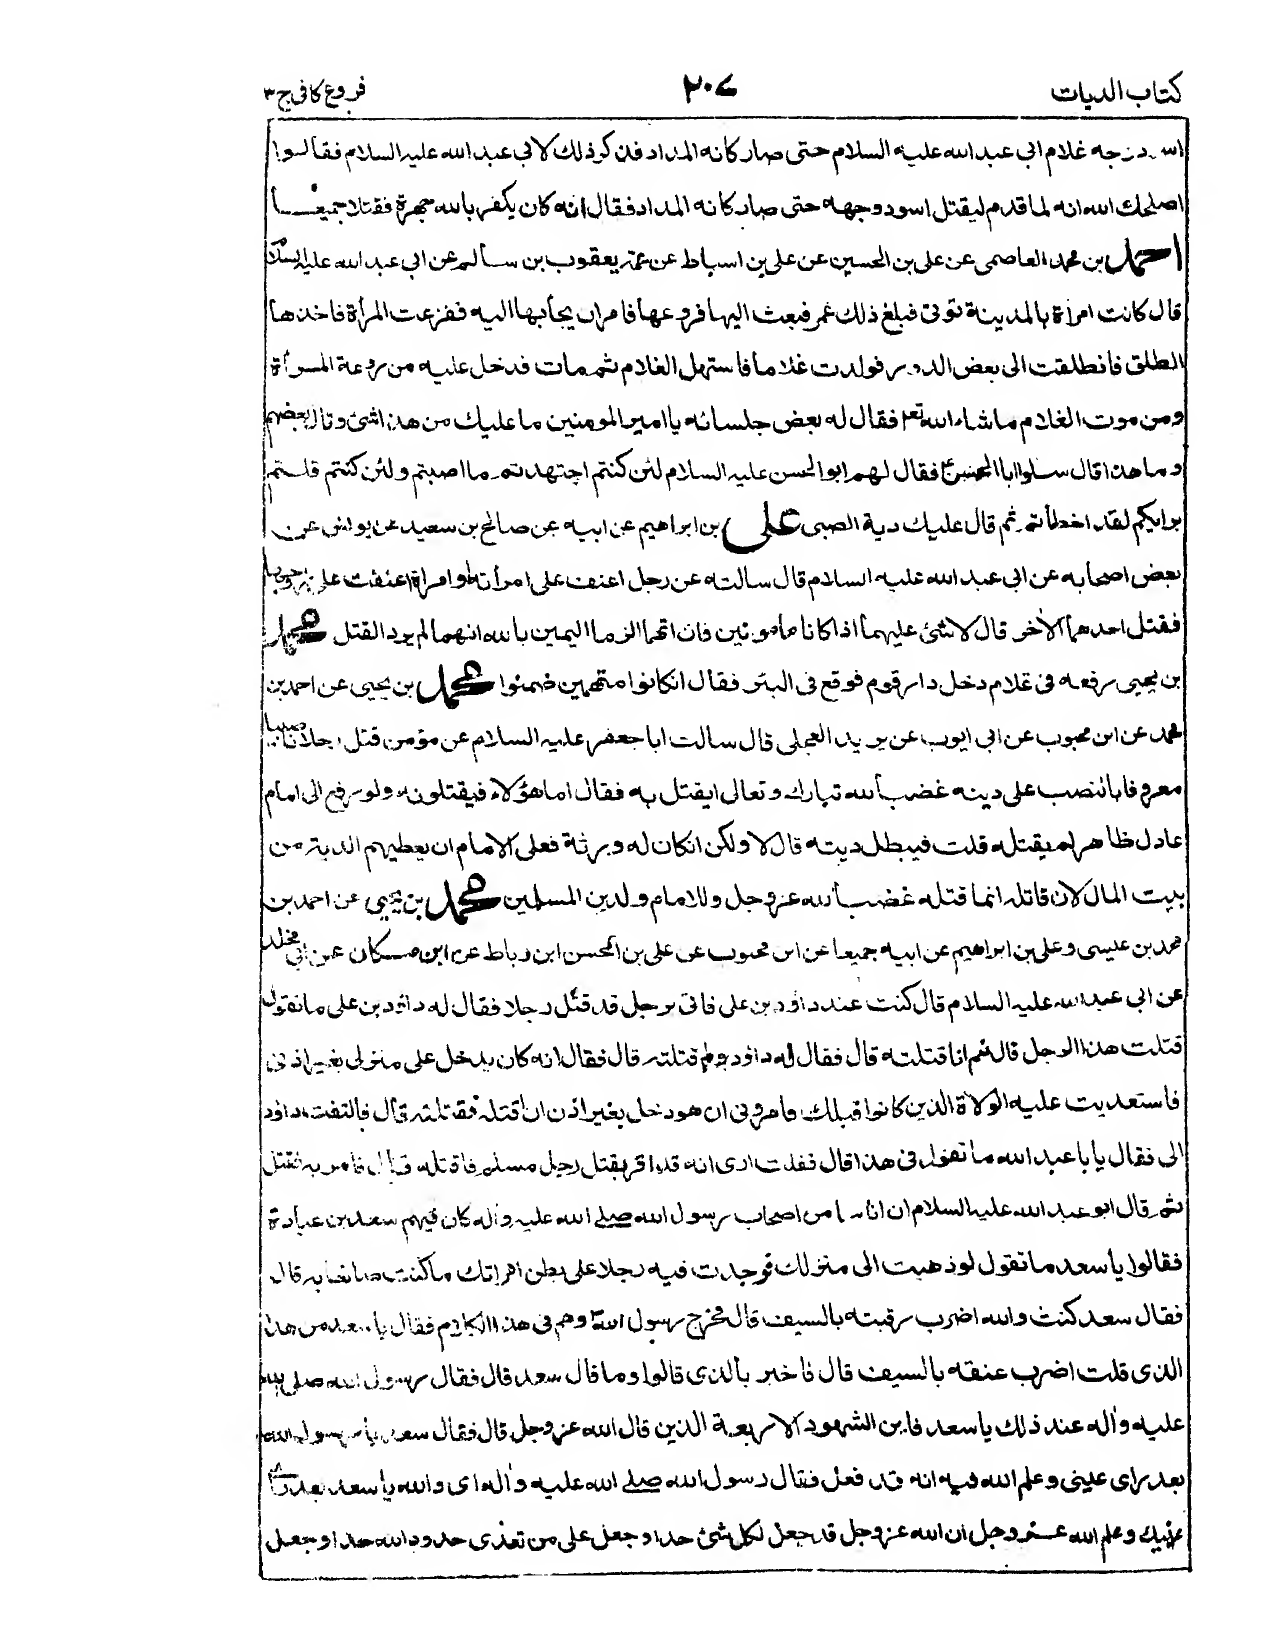 كتاب الديات ٢٠٧ فروع كافى ج ٣
غلام ابى عبد الله عليه السلام حتى صار كانه المداد فذكر ذلك لابى عبد الله عليه السلام فقالوا
اصلحك الله انه لما قدم ليقتل اسود وجهه حتى صار كانه المداد فقال انه كان يكفر بالله جهرة فقتلا جميعا
احمد بن محمد العاصمى عن على بن الحسين عن على بن اسباط عن عمه يعقوب بن سالم عن ابى عبد الله عليه السلام
قال كانت امراة بالمدينة تؤتى فبلغ ذلك عمر فبعث اليها فروعها فامران يجأ بها اليه ففزعت المرأة فاخذها
الطلق فانطلقت الى بعض الدور فولدت غلاما فاستهل الغلام ثم مات فدخل عليه من روعة المرأة
ومن موت الغلام ما شاء الله فقال له بعض جلسائه يا امير المومنين ما عليك من هذا شئ وقال بعضهم
وما هذا قال سلوا ابا الحسن فقال لهم ابو الحسن عليه السلام لئن كنتم اجتهدتم ما اصبتم ولئن كنتم قلتم
برايكم لقد اخطأتم ثم قال عليك دية الصبى على بن ابراهيم عن ابيه عن صالح بن سعيد عن يونس عن
بعض اصحابه عن ابى عبد الله عليه السلام قال سالته عن رجل اعنف على امراته او امراة اعنفت على زوجها
فقتل احدهما الآخر قال لا شئ عليهما اذا كانا مامونين فان اتهما الزما اليمين بالله انهما لم يرد القتل محمد
بن يحيى رفعه فى غلام دخل دار قوم فوقع فى البئر فقال انكانوا متهمين ضمنوا محمد بن يحيى عن احمد بن
محمد عن ابن محبوب عن ابى ايوب عن بريد العجلى قال سالت ابا جعفر عليه السلام عن مؤمن قتل رجلا ناصبيا
معروفا بالنصب على دينه غضبا لله تبارك وتعالى ايقتل به فقال اما هؤلاء فيقتلونه ولو رفع الى امام
عادل ظاهر لم يقتله قلت فيبطل ديته قال لا ولكن انكان له ورثة فعلى الامام ان يعطيهم الدية من
بيت المال لان قاتله انما قتله غضبا لله عز وجل وللامام ولدين المسلمين محمد بن يحيى عن احمد بن
محمد بن عيسى وعلى بن ابراهيم عن ابيه جميعا عن ابن محبوب عن على بن الحسن ابن رباط عن ابن مسكان عن ابى مخلد
عن ابى عبد الله عليه السلام قال كنت عند داؤد بن على فاتى برجل قد قتل رجلا فقال له داؤد بن على ما تقول
قتلت هذا الرجل قال نعم انا قتلته قال فقال له داؤد ولم قتلته قال فقال انه كان يدخل على منزلى بغير اذنى
فاستعديت عليه الولاة الذين كانوا قبلك فامرونى ان هو دخل بغير اذن ان اقتله فقتلته قال فالتفت داؤد
الى فقال يا با عبد الله ما تقول فى هذا قال فقلت ارى انه قد اقر بقتل رجل مسلم فاقتله قال فامر به فقتل
ثم قال ابو عبد الله عليه السلام ان اناسا من اصحاب رسول الله صلى الله عليه وآله كان فيهم سعد بن عبادة
فقالوا يا سعد ما تقول لو ذهبت الى منزلك فوجدت فيه رجلا على بطن امراتك ما كنت صانعا به قال
فقال سعد كنت والله اضرب رقبته بالسيف قال فخرج رسول الله وهم فى هذا الكلام فقال يا سعد من هذا
الذى قلت اضرب عنقه بالسيف قال فاخبر بالذى قالوا وما قال سعد قال فقال رسول الله صلى الله
عليه وآله عند ذلك يا سعد فاين الشهود الاربعة الذين قال الله عز وجل قال فقال سعد يا رسول الله
بعد راى عينى وعلم الله فيه انه قد فعل فقال رسول الله صلى الله عليه وآله اى والله يا سعد بعد راى
عينك وعلم الله عز وجل ان الله عز وجل قد جعل لكل شئ حدا وجعل على من تعدى حدود الله حدا وجعل